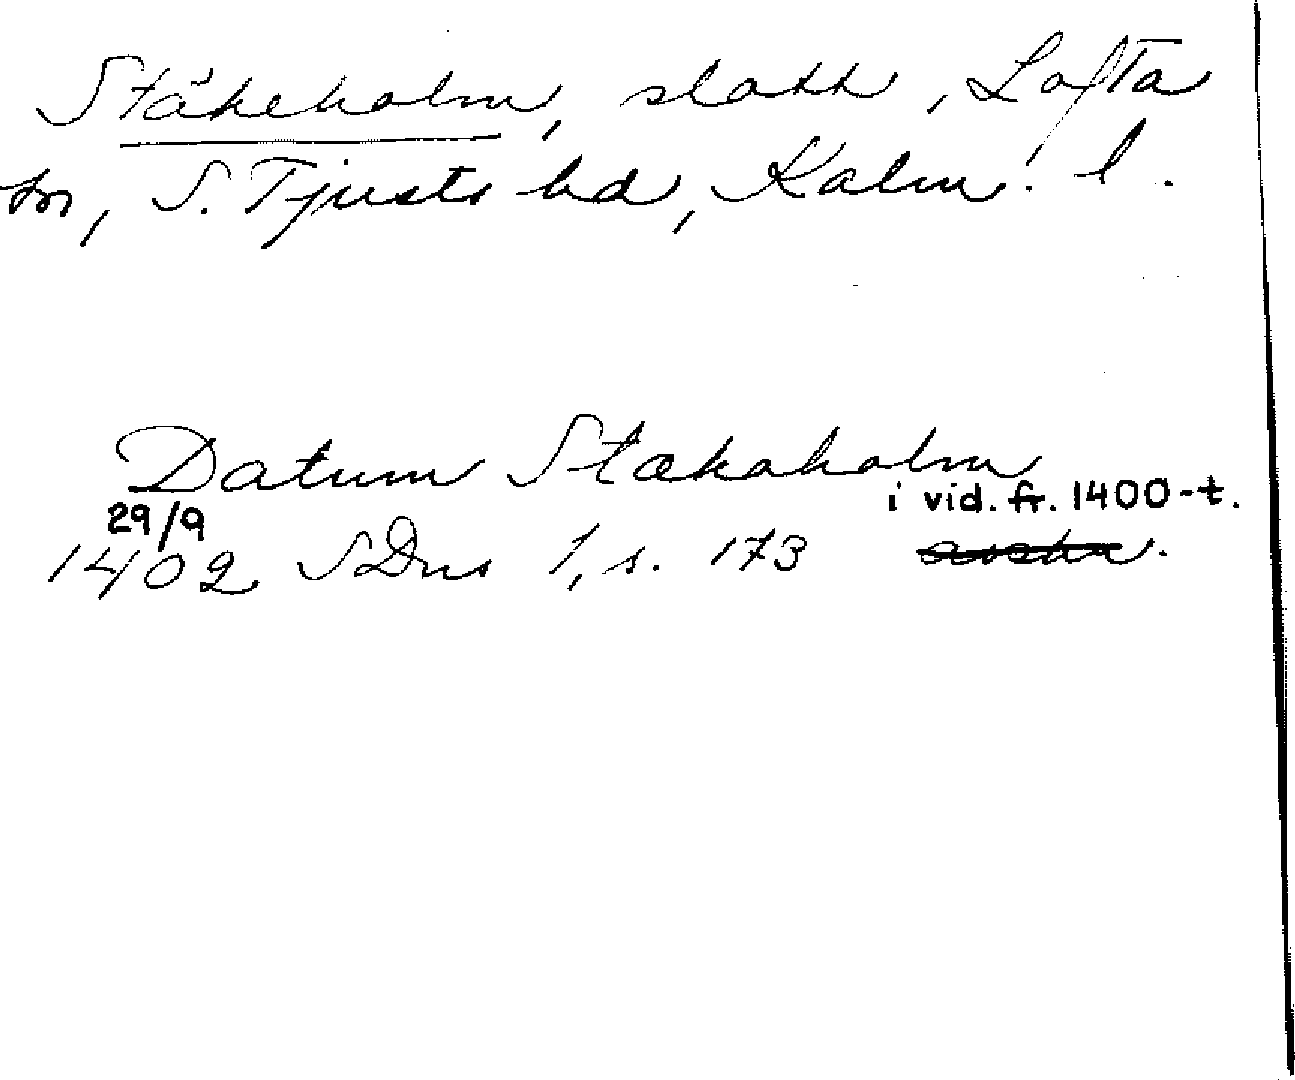 Stäkeholm, slott, Lofta
sn, S. Tjusts hd, Kalm. l.
Datum Stækaholm
i vid. fr. 1400-t.
29/9
1402 SDns 1, s. 173